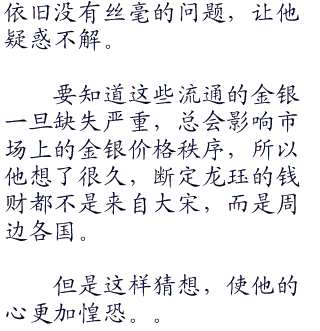 依旧没有丝毫的问题，让他
疑惑不解。
要知道这些流通的金银
一旦缺失严重，总会影响市
场上的金银价格秩序，所以
他想了很久，断定龙珏的钱
财都不是来自大宋，而是周
边各国。
但是这样猜想，使他的
心更加惶恐。。